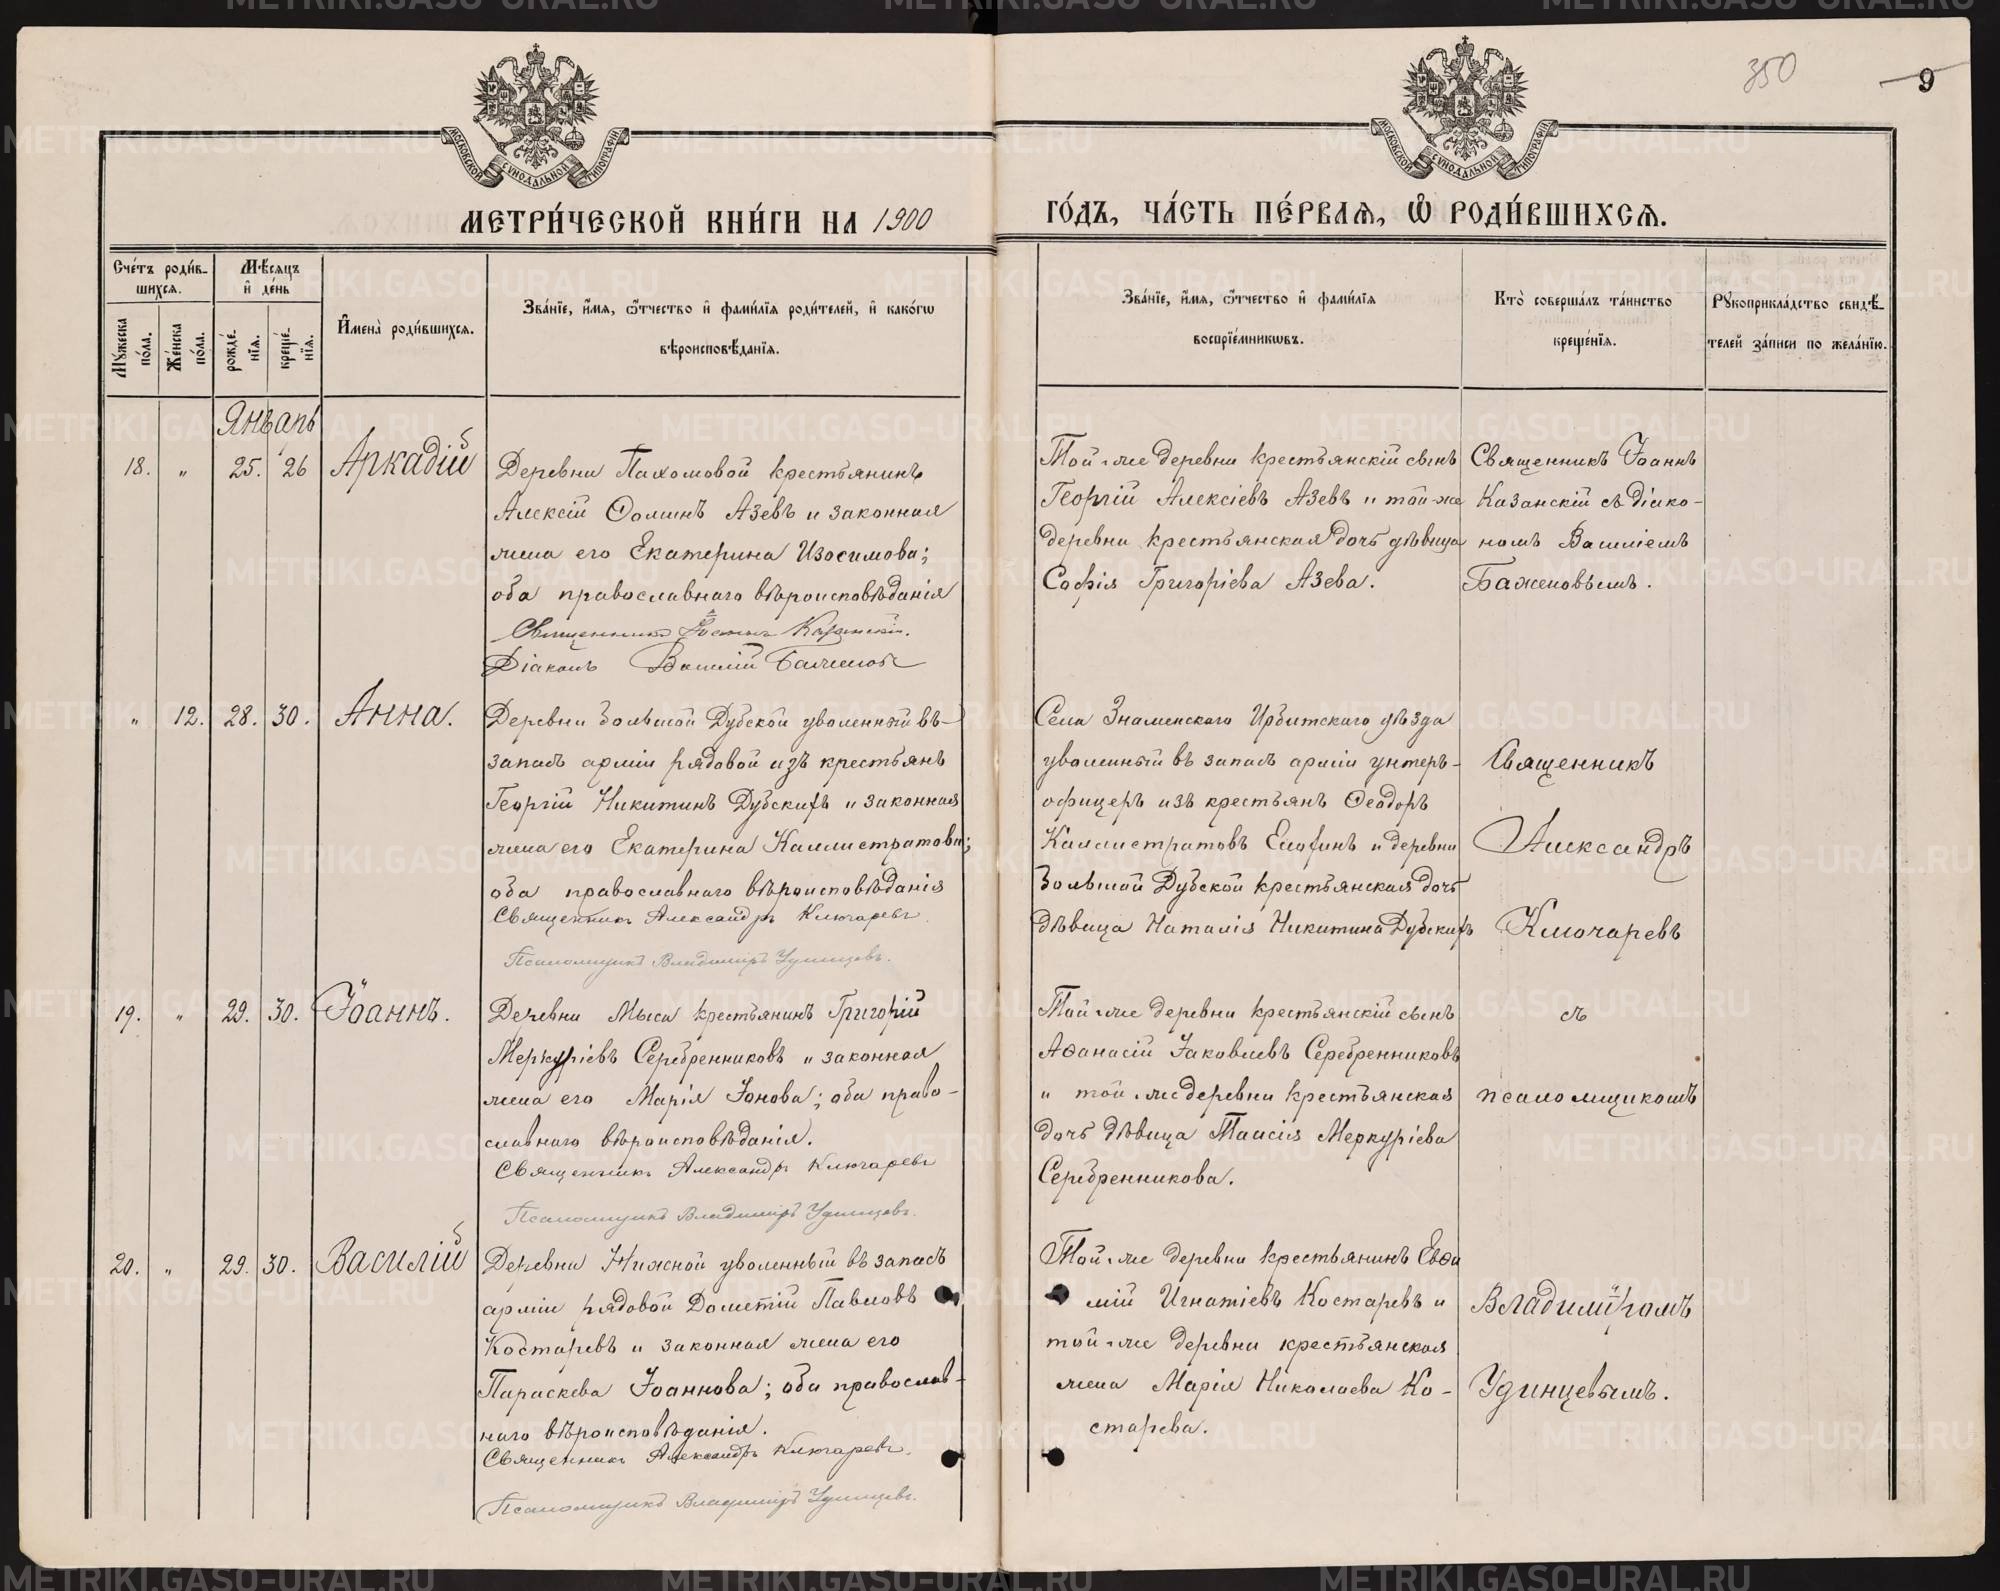 350
9
МОСКОВСКОЙ СУНОДАЛЬНОЙ ТИПОГРАФІИ
МОСКОВСКОЙ СУНОДАЛЬНОЙ ТИПОГРАФІИ
МЕТРИ́ЧЕСКОЙ КНИ́ГИ НА 1900
ГО́ДЪ, ЧА́СТЬ ПЕ́РВАѦ, Ѡ҆ РОДИ́ВШИХСѦ.
Сче́тъ роди́в-
шихсѧ.
Мꙋ́жеска по́ла.
Же́нска по́ла.
Мѣ́сѧцъ
и҆ де́нь
рожде́-
нїѧ.
креще́-
нїѧ.
И҆мена̀ роди́вшихсѧ.
Зва́нїе, и҆́мѧ, ѻ҆́тчество и҆ фами́лїѧ роди́телей, и҆ како́гѡ
вѣроисповѣ́данїѧ.
Зва́нїе, и҆́мѧ, ѻ҆́тчество и҆ фами́лїѧ
воспрїе́мникѡвъ.
Кто̀ соверша́лъ та́инство
креще́нїѧ.
Рꙋкоприкла́дство свидѣ́-
телей за́писи по жела́нїю.
Январь
18. " 25. 26 Аркадій
Деревни Пахомовой крестьянинъ
Алексій Ѳоминъ Азевъ и законная
жена его Екатерина Изосимова;
оба православнаго вѣроисповѣданія
Священникъ Іоаннъ Казанскій.
Діаконъ Василій Баженовъ
Той-же деревни крестьянскій сынъ
Георгій Алексіевъ Азевъ и той-же
деревни крестьянская дочь дѣвица
Софія Григоріева Азева.
Священникъ Іоаннъ
Казанскій съ діако-
номъ Василіемъ
Баженовымъ.
" 12. 28. 30. Анна.
Деревни Большой Дубской уволенный въ-
запасъ арміи рядовой изъ крестьянъ
Георгій Никитинъ Дубскихъ и законная
жена его Екатерина Каллистратова;
оба православнаго вѣроисповѣданія
Священникъ Александръ Ключаревъ.
Псаломщикъ Владиміръ Удинцевъ.
Села Знаменскаго Ирбитскаго уѣзда
уволенный въ запасъ арміи унтеръ-
офицеръ изъ крестьянъ Ѳеодоръ
Каллистратовъ и деревни
Большой Дубской крестьянская дочь
дѣвица Наталія Никитина Дубскихъ
Священникъ
Александръ
Ключаревъ
19. " 29. 30. Іоаннъ.
Деревни Мыса крестьянинъ Григорій
Меркуріевъ Серебренниковъ и законная
жена его Марія Іонова; оба право-
славнаго вѣроисповѣданія.
Священникъ Александръ Ключаревъ
Псаломщикъ Владиміръ Удинцевъ.
Той-же деревни крестьянскій сынъ
Аѳанасій Іаковлевъ Серебренниковъ
и той-же деревни крестьянская
дочь дѣвица Таисія Меркуріева
Серебренникова.
съ
псаломщикомъ
20. " 29. 30. Василій
Деревни Нижной уволенный въ запасъ
арміи рядовой Дометій Павловъ
Костаревъ и законная жена его
Параскева Іоаннова; оба православ-
наго вѣроисповѣданія.
Священникъ Александръ Ключаревъ.
Псаломщикъ Владиміръ Удинцевъ.
Той-же деревни крестьянинъ Евѳи
мій Игнатіевъ Костаревъ и
той-же деревни крестьянская
жена Марія Николаева Ко-
старева.
Владиміромъ
Удинцевымъ.
METRIKI.GASO-URAL.RU